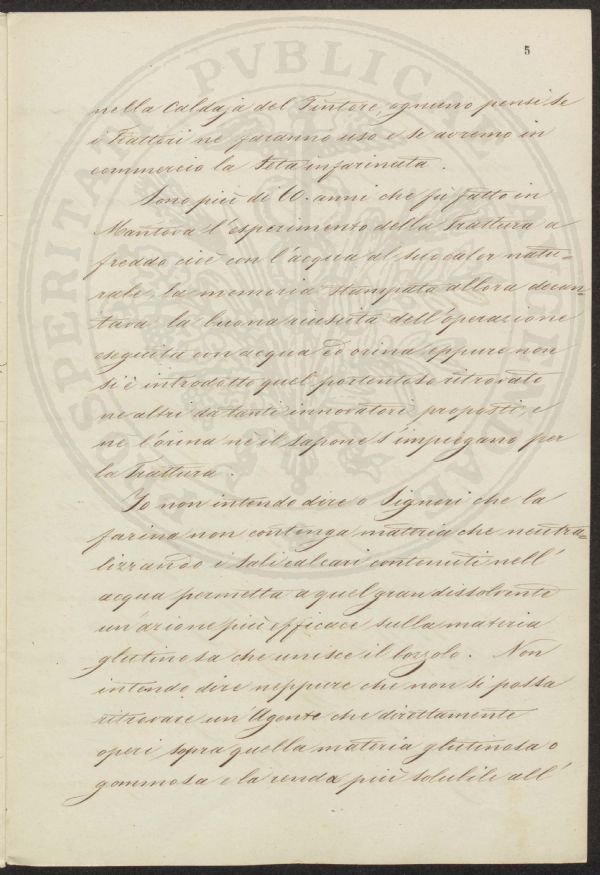 5
nella Caldaja del Tintore, ognuno pensi se
i Trattori ne faranno uso e se avremo in
commercio la Seta infarinata.
Sono più di 60. anni che fù fatto in
Mantova l'esperimento della Trattura a
freddo cioè con l'acqua al suo calor natu=
rale, la memoria stampata allora decan=
tava la buona riuscita dell'operazione
eseguita con acqua ed orina eppure non
si è introdotto quel portentoso ritrovato
ne altri da tanti innovatori proposti, e
ne l'orina nè il sapone s'impiegano per
la Trattura.
Io non intendo dire o Signori che la
farina non contenga materia che neutra=
lizzando i sali calcari contenuti nell'
acqua permetta a quel gran dissolvente
un'azione più efficace sulla materia
glutinosa che unisce il bozzolo. Non
intendo dire neppure che non si possa
ritrovare un'Agente che direttamente
operi sopra quella materia glutinosa o
gommosa e la renda più solubile all'
PVBLICAE
PROSPERITATI
AVGENDAE